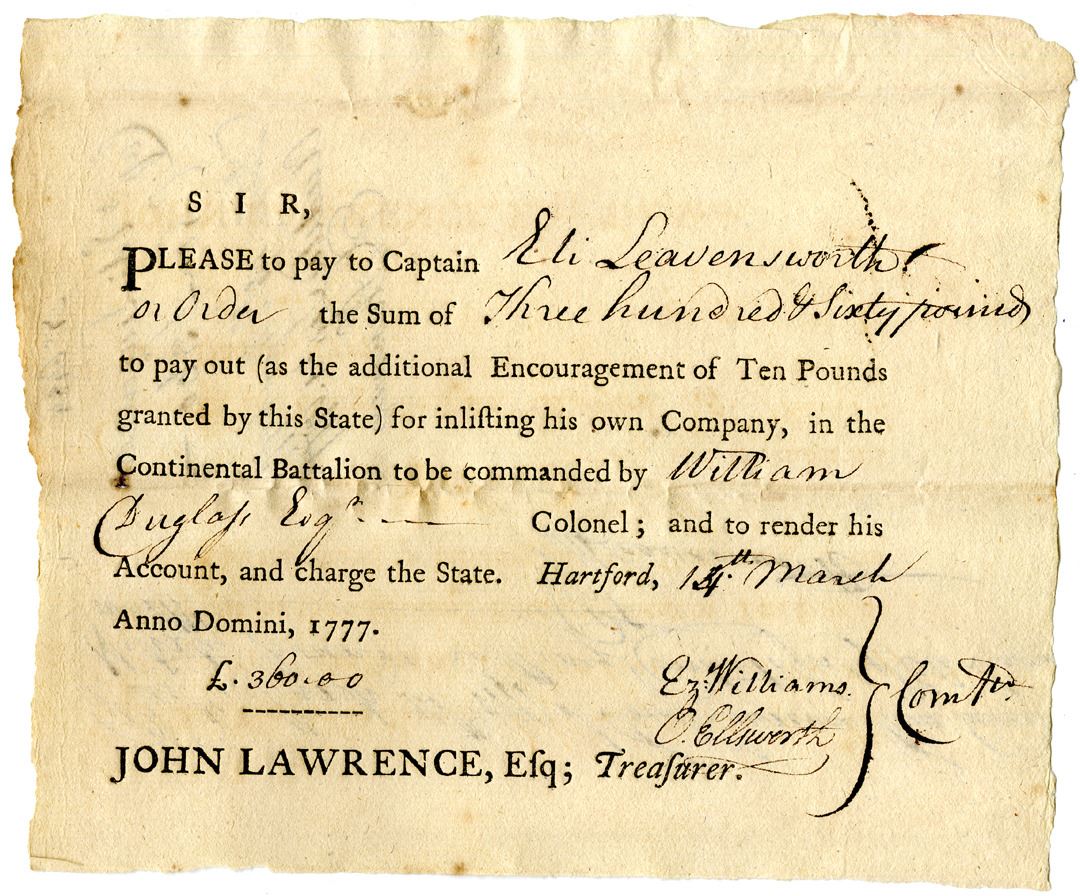 SIR,
PLEASE to pay to Captain Eli Leavensworth
or Order the Sum of Three hundred & Sixty pounds
to pay out (as the additional Encouragement of Ten Pounds
granted by this State) for inliſting his own Company, in the
Continental Battalion to be commanded by William
Duglaſs Esqr. Colonel; and to render his
Account, and charge the State. Hartford, 14th. March
Anno Domini, 1777.
£. 360..0.0
Ez: Williams.
O. Ellsworth
Comtee
JOHN LAWRENCE, Eſq; Treaſurer.